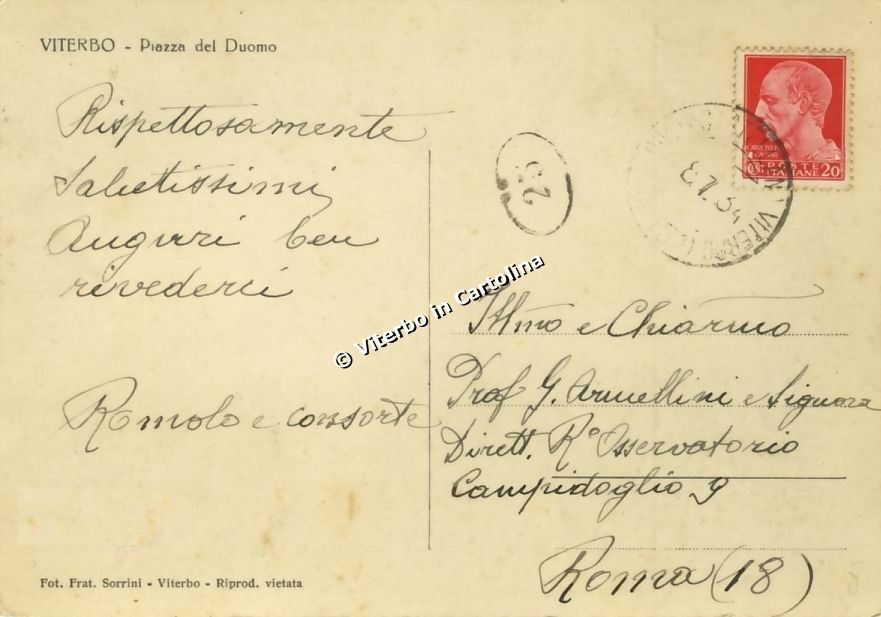 VITERBO - Piazza del Duomo
Rispettosamente
Salutissimi
Auguri ben
rivederci
Romolo e consorte
Fot. Frat. Sorrini - Viterbo - Riprod. vietata
© Viterbo in Cartolina
25
8.7.34
VITERBO
POSTE
ITALIANE 20
Illmo e Chiarmo
Prof G. Armellini e Signora
Dirett. Rº Osservatorio
Campidoglio 9
Roma (18)